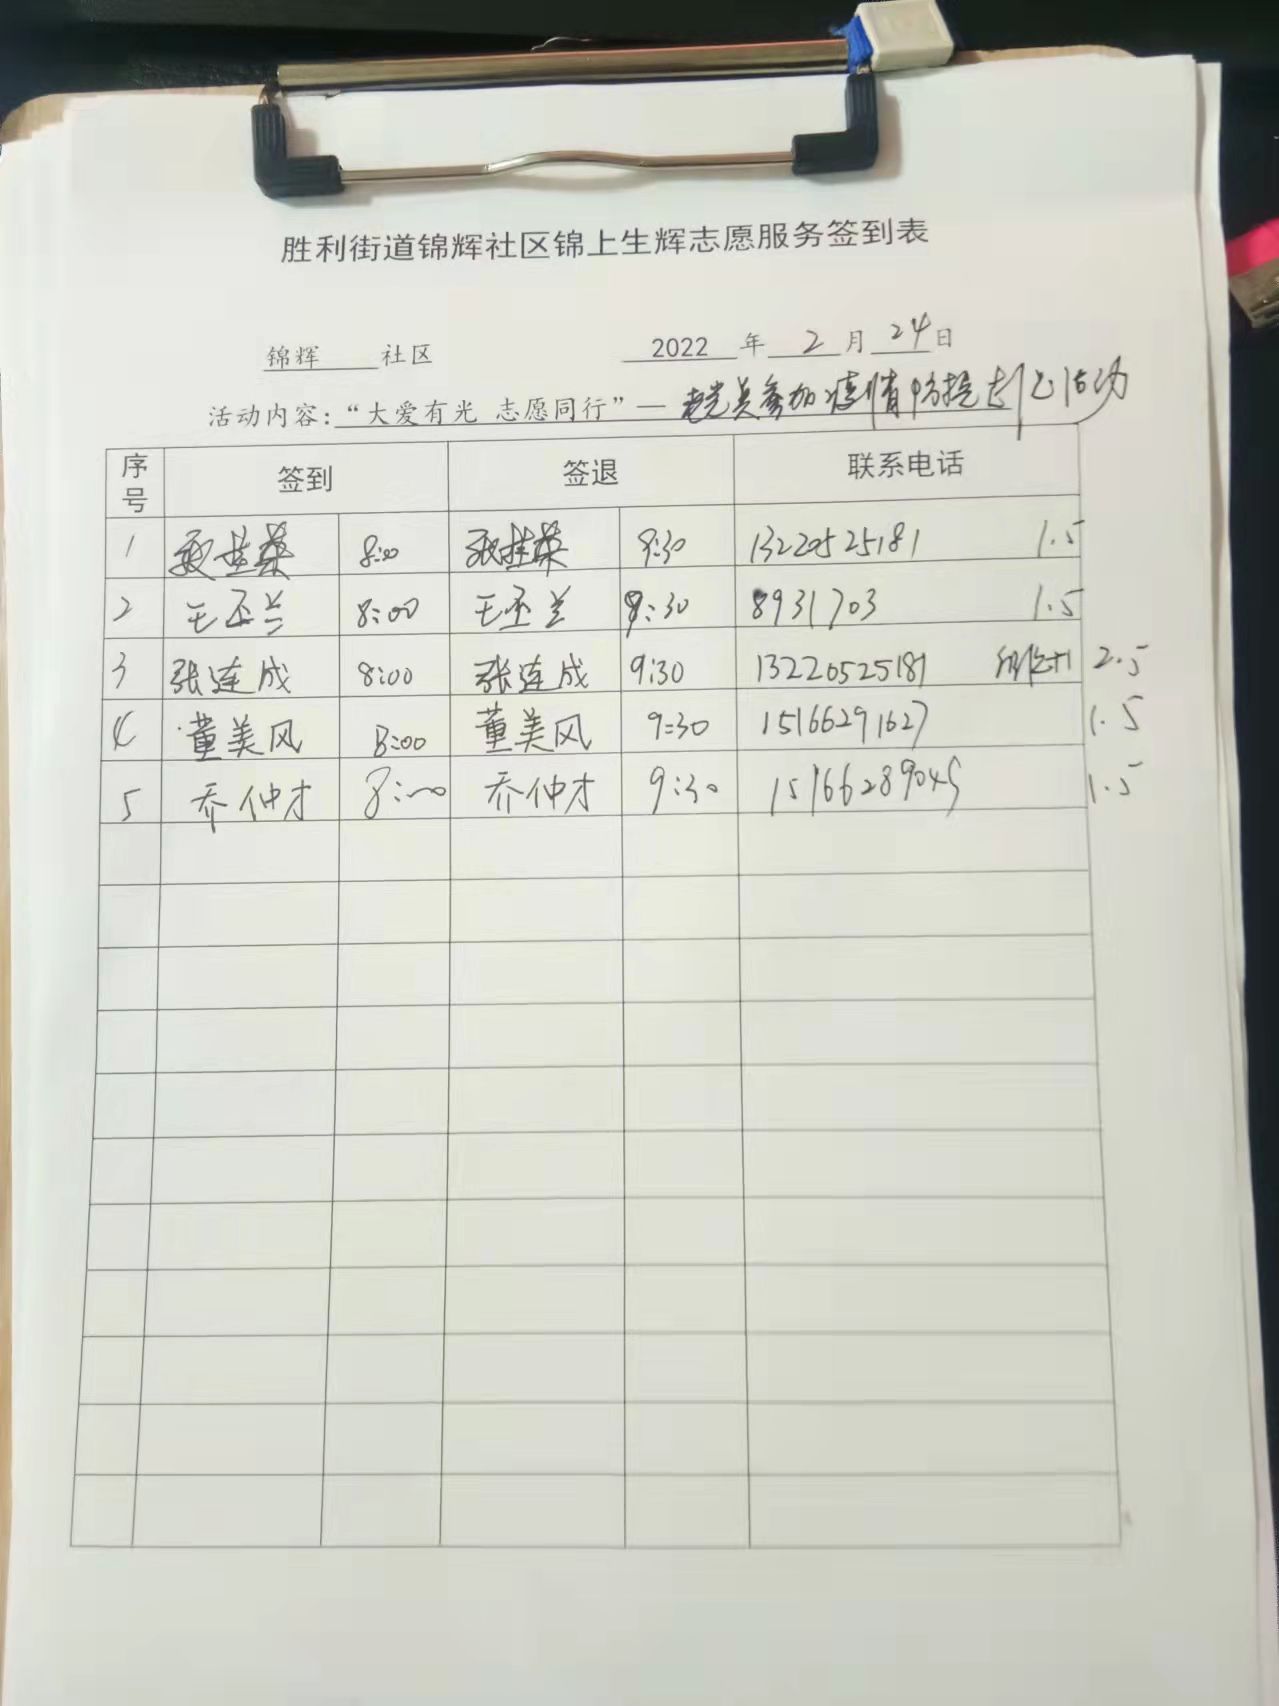 胜利街道锦辉社区锦上生辉志愿服务签到表
锦辉 社区 2022 年 2 月 24 日
活动内容：“大爱有光 志愿同行”— 老党员参加疫情防控志愿活动
序号 签到 签退 联系电话
1 8:00 9:30 13220525181 1.5
2 王丕兰 8:00 王丕兰 9:30 8931703 1.5
3 张连成 8:00 张连成 9:30 13220525181 2.5
4 董美风 8:00 董美风 9:30 15166291627 1.5
5 乔仲才 8:00 乔仲才 9:30 15166289045 1.5